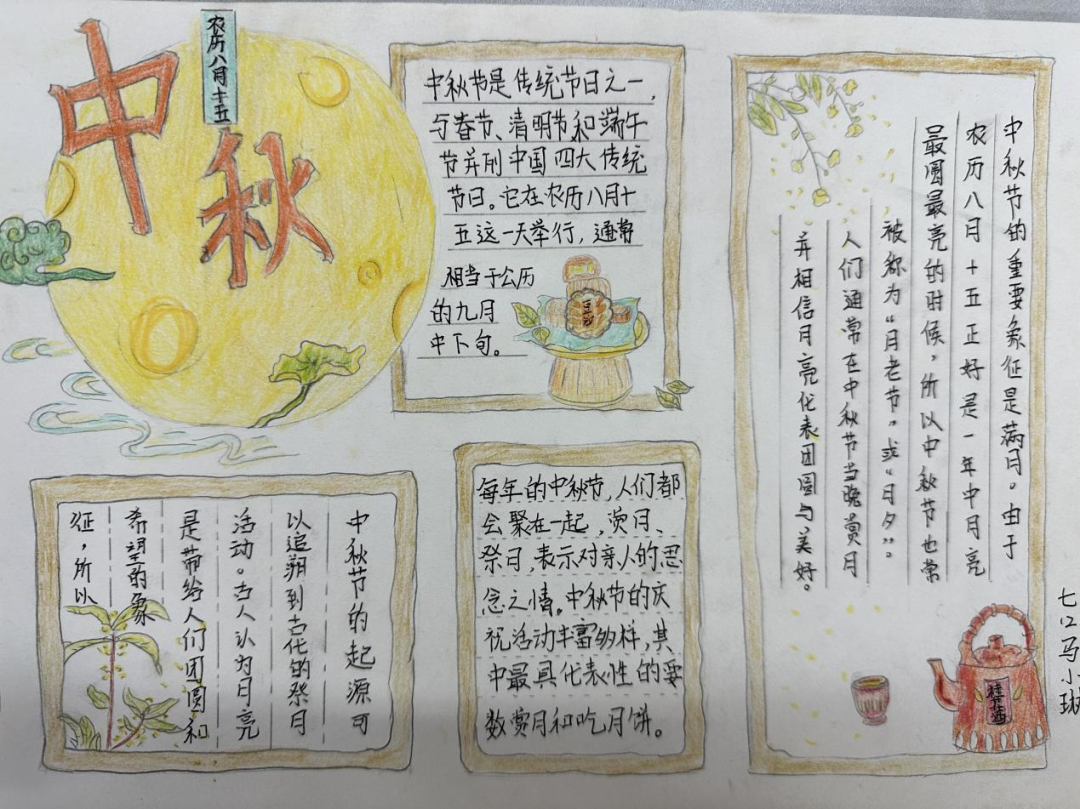 中秋
农历八月十五
中秋节是传统节日之一,
与春节、清明节和端午
节并列中国四大传统
节日。它在农历八月十
五这一天举行,通常
相当于公历
的九月
中下旬。
中秋节的重要象征是满月。由于
农历八月十五正好是一年中月亮
最圆最亮的时候,所以中秋节也常
被称为“月老节”或“月夕”。
人们通常在中秋节当晚赏月
并相信月亮代表团圆与美好。
中秋节的起源可
以追溯到古代的祭月
活动。古人认为月亮
是带给人们团圆和
希望的象
征,所以
每年的中秋节,人们都
会聚在一起,赏月、
祭月,表示对亲人的思
念之情。中秋节的庆
祝活动丰富多样,其
中最具代表性的要
数赏月和吃月饼。
七口马小琳